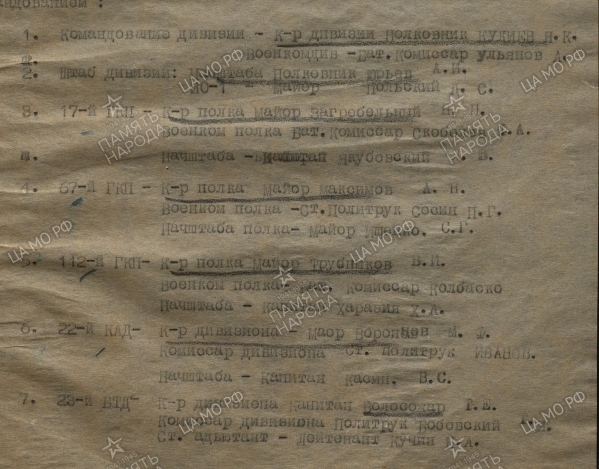 командованием:
1. Командование дивизии - К-р дивизии Полковник КУЛИЕВ Я.К.
Военкомдив - Бат. Комиссар Ульянов А.
2. Штаб дивизии: Штаба Полковник Юрьев А.Н.
НО-1 - Майор Польский Л. С.
3. 17-й ГКП - К-р полка Майор Загребельный
Военком полка Бат. Комиссар
Начштаба - Капитан В.
4. 67-й ГКП - К-р полка Майор Максимов А. Н.
Военком полка - Ст. Политрук Сосин П.Г.
Начштаба полка - Майор С.Г.
5. 112-й ГКП - К-р полка Майор Трубников В.И.
Военком полка - Комиссар Колбаско
Начштаба - Харавин Х.А.
6. 22-й КАД - К-р дивизиона - Маор Воронцев М. Ф.
Комиссар дивизиона Ст. Политрук ИВАНОВ.
Начштаба - Капитан Касин. В.С.
7. 23-й ВТД - К-р дивизиона Капитан Волосокар
Комиссар дивизиона Политрук Бобовский
Ст. адьютант - Лейтенант Кучин А.
ЦАМО.РФ
ПАМЯТЬ НАРОДА